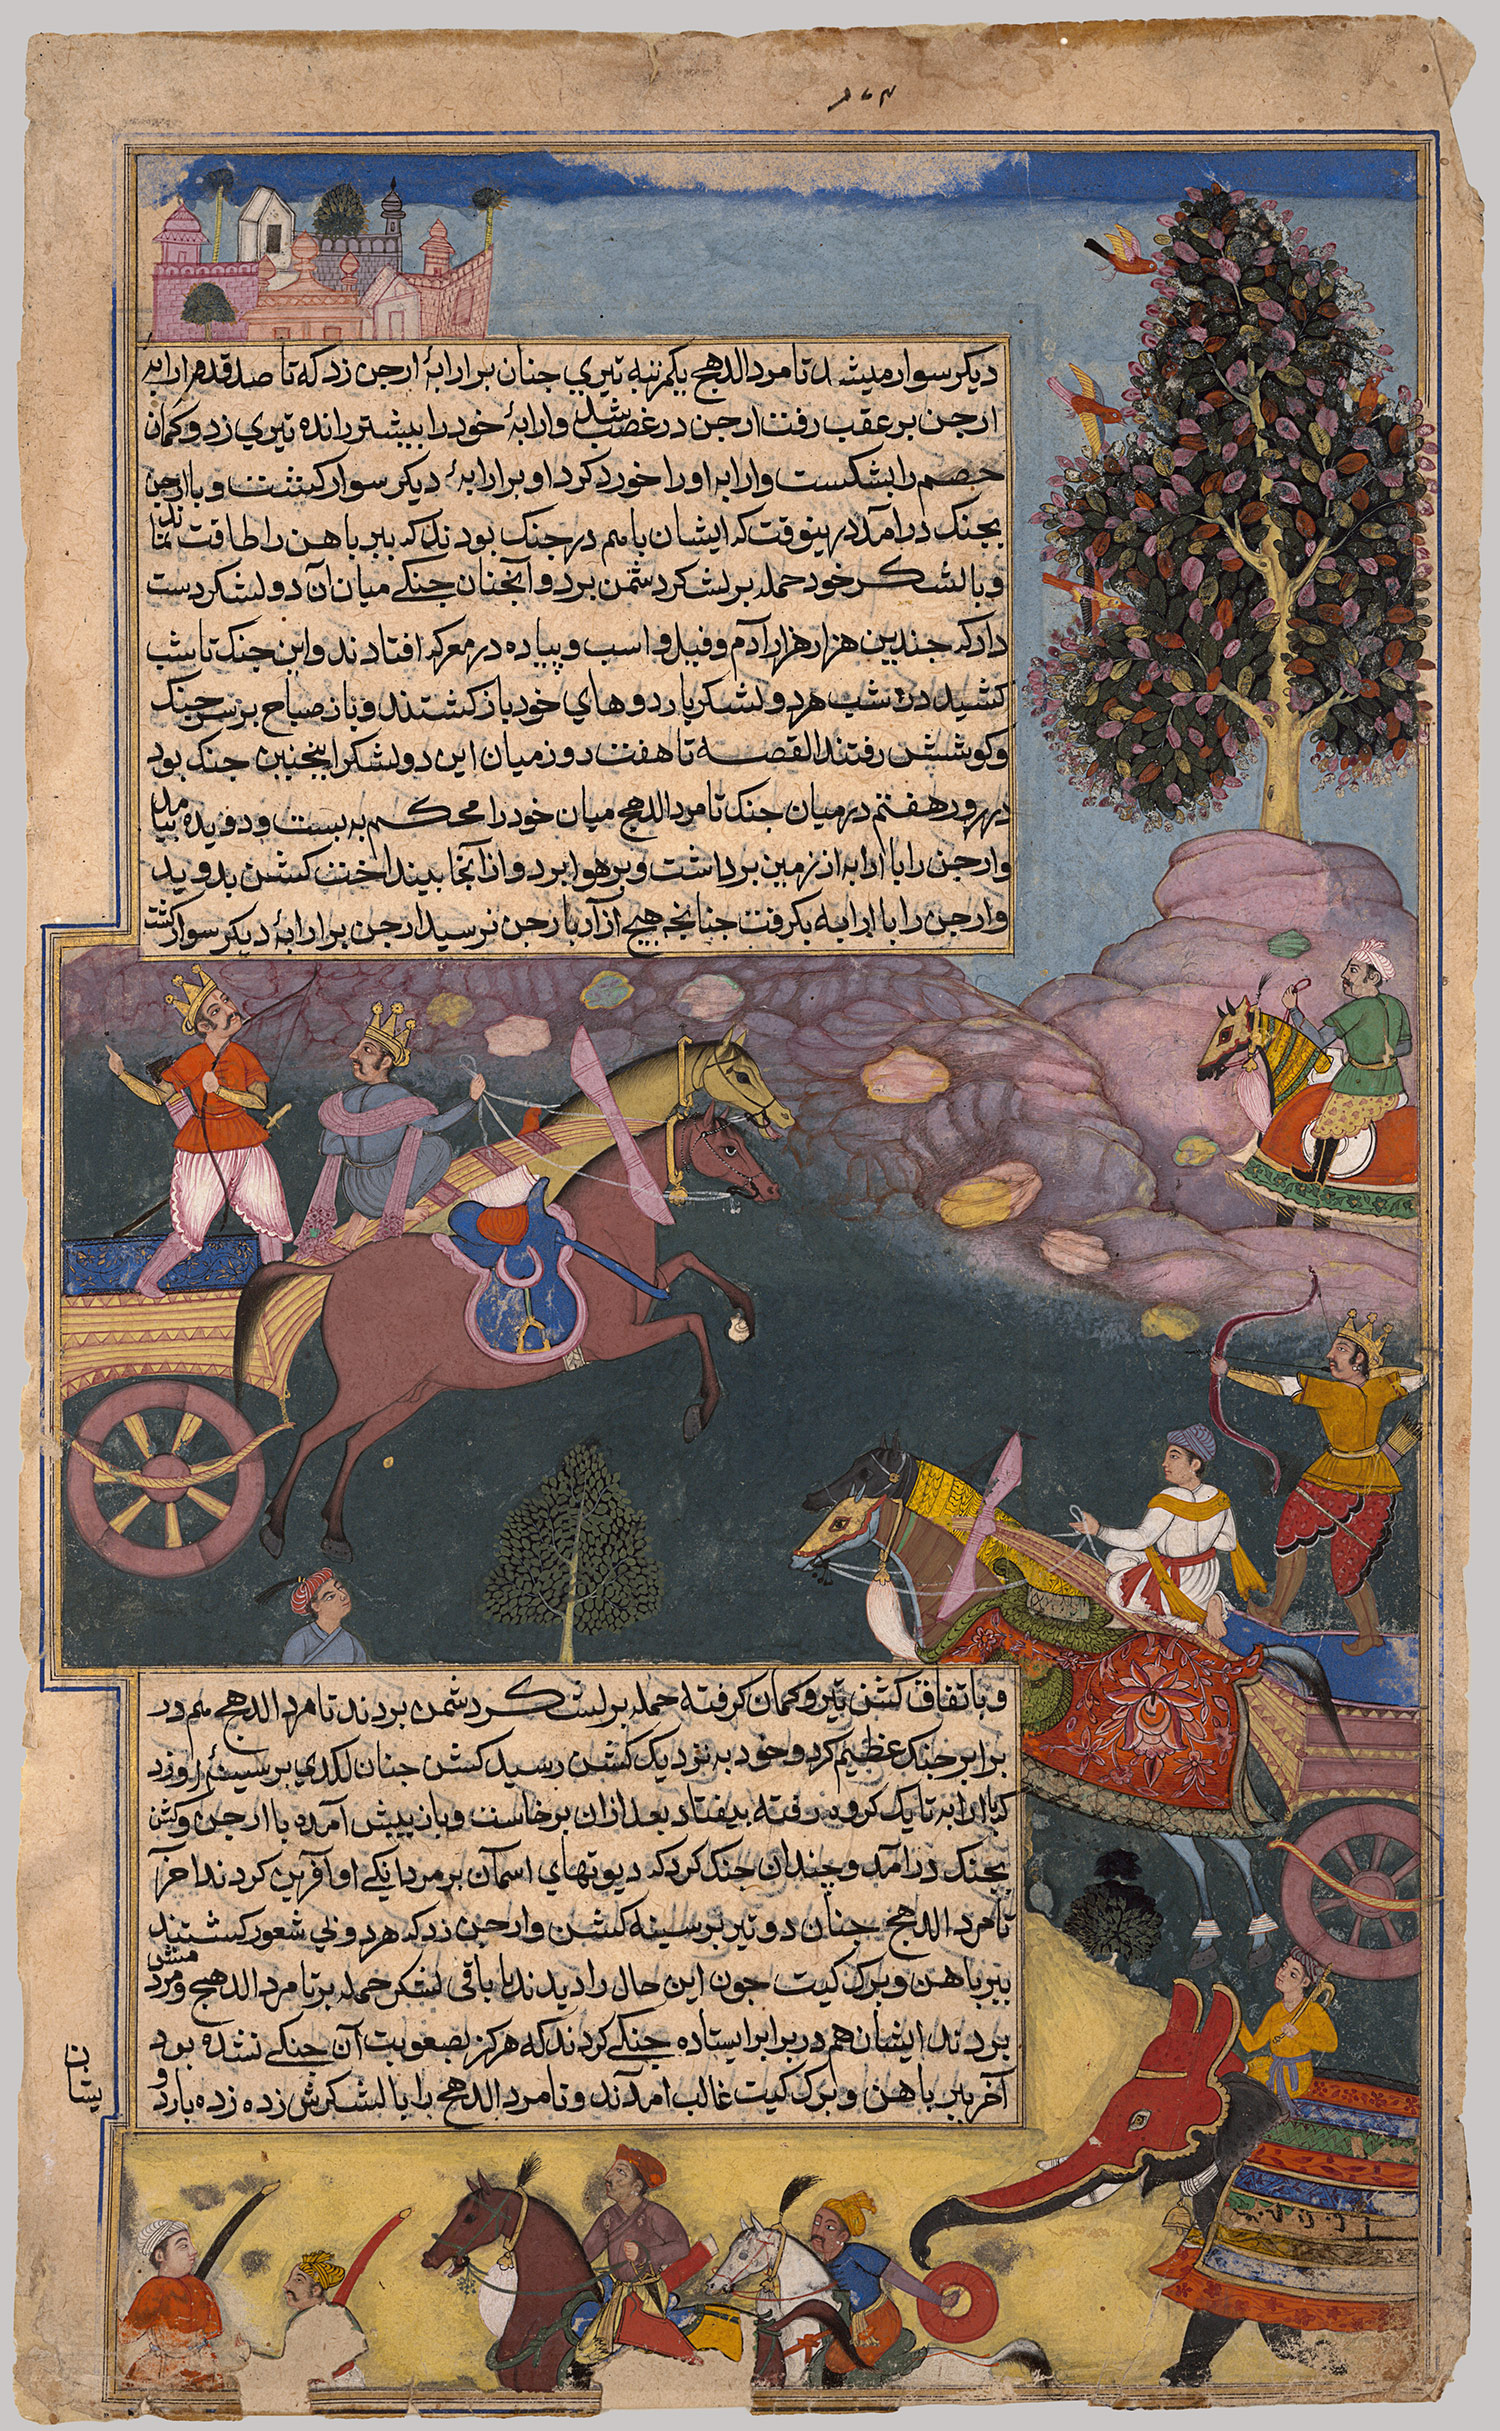 ۱۷۴
دیکر سوار میشد تا مرد الدهج یکمرتبه تیری جنان بر ارابهٔ ارجن زد که تا صد قدم ارابه
ارجن بر عقب رفت ارجن در غضب شد و ارابهٔ خود را بیشتر رانده تیری زد و کمان
خصم را بشکست و ارابه او را خورد کرد او بر ارابهٔ دیکر سوار کشت و با ارجن
بجنک درآمد درینوقت که ایشان باهم در جنک بودند که ببر باهن را طاقت نماند
و با لشکر خود حمله بر لشکر دشمن برد و آنجنان جنکی میان آن دو لشکر دست
داد که جندین هزار هزار آدم و فیل و اسب و پیاده در معرکه افتادند و این جنک تا شب
کشید در شب هر دو لشکر باردوهای خود باز کشتند و باز صباح بر سر جنک
و کوشش رفتند القصه تا هفت روز میان این دو لشکر اینجنین جنک بود
در روز هفتم در میان جنک تامرد الدهج میان خود را محکم به بست و دویده بیامد
و ارجن را با ارابه از زمین برداشت و بر هوا برد و از آنجا بینداخت کشن بدوید
و ارجن را با ارابه بکرفت جنانجه هیج آزار بارجن نرسید ارجن بر ارابهٔ دیکر سوار کشت
و باتفاق کشن تیر و کمان کرفته حمله بر لشکر دشمن بردند تامرد الدهج هم در
برابر جنک عظیم کرد و خود به نزدیک کشن رسید کشن جنان لکدی بر سینهٔ او زد
که با ارابه تا یک کروه رفته بیفتاد بعد ازان برخاست و باز پیش آمده با ارجن و کشن
بجنک درآمد و چندان جنک کرد که دیوتهای اسمان بر مردانکی او آفرین کردند آخر
تامرد الدهج جنان دو تیر بر سینه کشن و ارجن زد که هر دو بی شعور کشتند
ببر باهن و برک کیت جون این حال را دیدند با باقی لشکر حمله بر تامرد الدهج و مردمش
بردند ایشان هم در برابر ایستاده جنکی کردند که هرکز بصعوبت آن جنکی نشده بود
آخر ببر باهن و برک کیت غالب آمدند و تامرد الدهج را با لشکرش زده زده بارد و
یشان